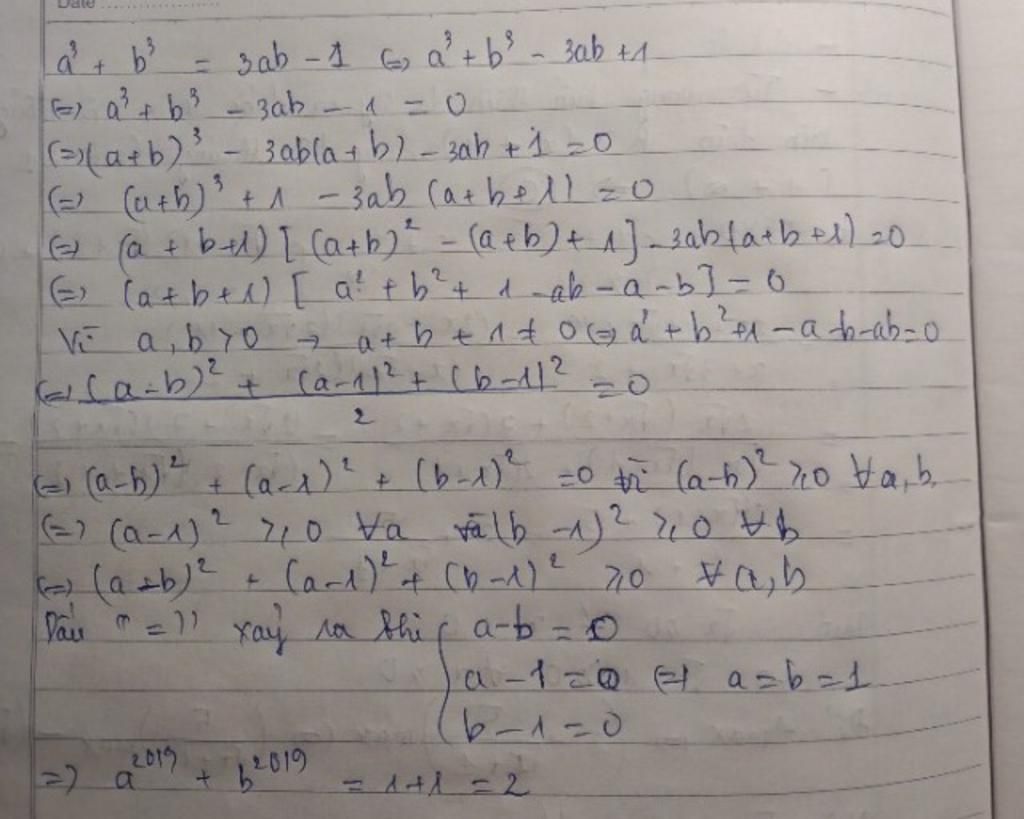 Date
a³ + b³ = 3ab - 1 (=) a³ + b³ - 3ab + 1
(=) a³ + b³ - 3ab - 1 = 0
(=) (a+b)³ - 3ab(a+b) - 3ab + 1 = 0
(=) (a+b)³ + 1 - 3ab (a+b+1) = 0
(=) (a+b+1) [(a+b)² - (a+b) + 1] - 3ab(a+b+1) = 0
(=) (a+b+1) [a² + b² + 1 - ab - a - b] = 0
Vì a, b > 0 → a + b + 1 ≠ 0 (=) a² + b² + 1 - a - b - ab = 0
(=) \frac{(a-b)² + (a-1)² + (b-1)²}{2} = 0
(=) (a-b)² + (a-1)² + (b-1)² = 0 vì (a-b)² ≥ 0 ∀a, b
(=) (a-1)² ≥ 0 ∀a và (b-1)² ≥ 0 ∀b
(=) (a-b)² + (a-1)² + (b-1)² ≥ 0 ∀a, b
Dấu "=" xảy ra khi { a-b = 0
a-1 = 0 (=) a = b = 1
b-1 = 0
=) a²⁰¹⁹ + b²⁰¹⁹ = 1+1 = 2